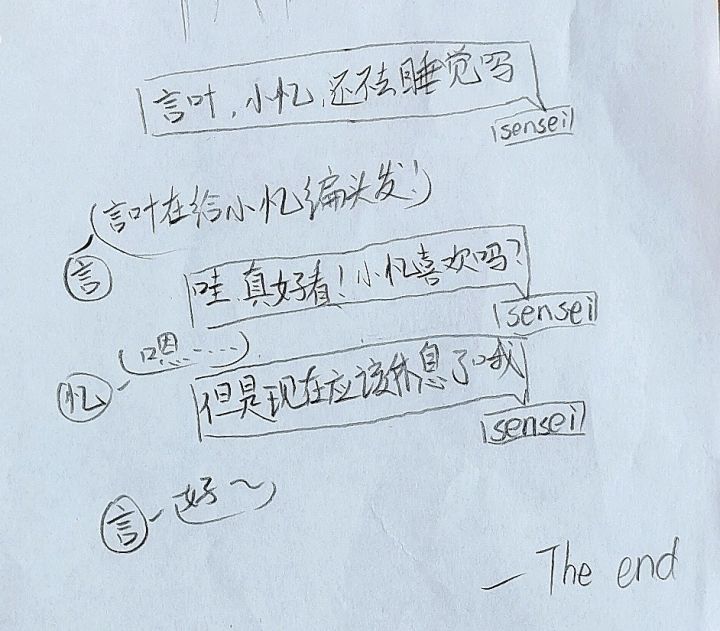 言叶，小忆，还不去睡觉吗
sensei
言叶在给小忆编头发！
言
哇 真好看！小忆喜欢吗？
sensei
嗯……
忆
但是现在应该休息了哦
sensei
言
好～
— The end